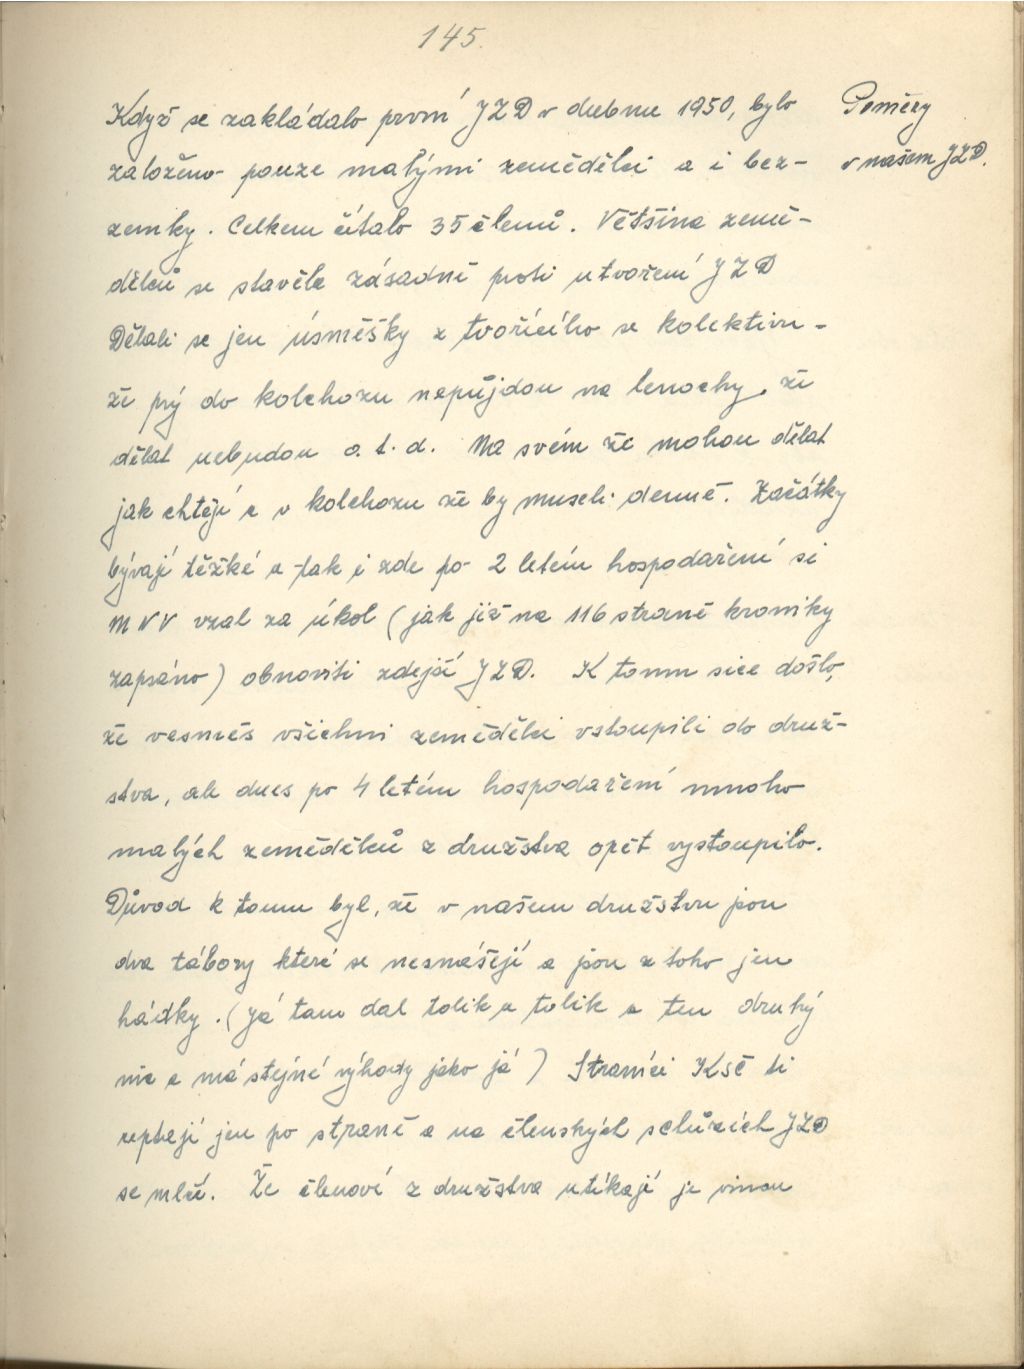 145.
Když se zakládalo první JZD v dubnu 1950, bylo
Poměry
založeno pouze malými zemědělci a i bez-
v našem JZD.
zemky. Celkem čítalo 35 členů. Většina země-
dělců se stavěla zásadně proti utvoření JZD
Dělali se jen úsměšky z tvořícího se kolektivu -
že prý do kolchozu nepůjdou na lenochy, že
dělat nebudou a. t. d. Na svém že mohou dělat
jak chtějí a v kolchozu že by museli denně. Začátky
bývají těžké a tak i zde po 2 letém hospodaření si
MNV vzal za úkol (jak již na 116 straně kroniky
zapsáno) obnoviti zdejší JZD. K tomu sice došlo,
že vesměs všichni zemědělci vstoupili do druž-
stva, ale dnes po 4 letém hospodaření mnoho
malých zemědělců z družstva opět vystoupilo.
Důvod k tomu byl, že v našem družstvu jsou
dva tábory které se nesnášejí a jsou z toho jen
hádky. (Já tam dal tolik a tolik a ten druhý
nic a má stejné výhody jako já) Straníci KSČ ti
reptají jen po straně a na členských schůzích JZD
se mlčí. Že členové z družstva utíkají je vinou